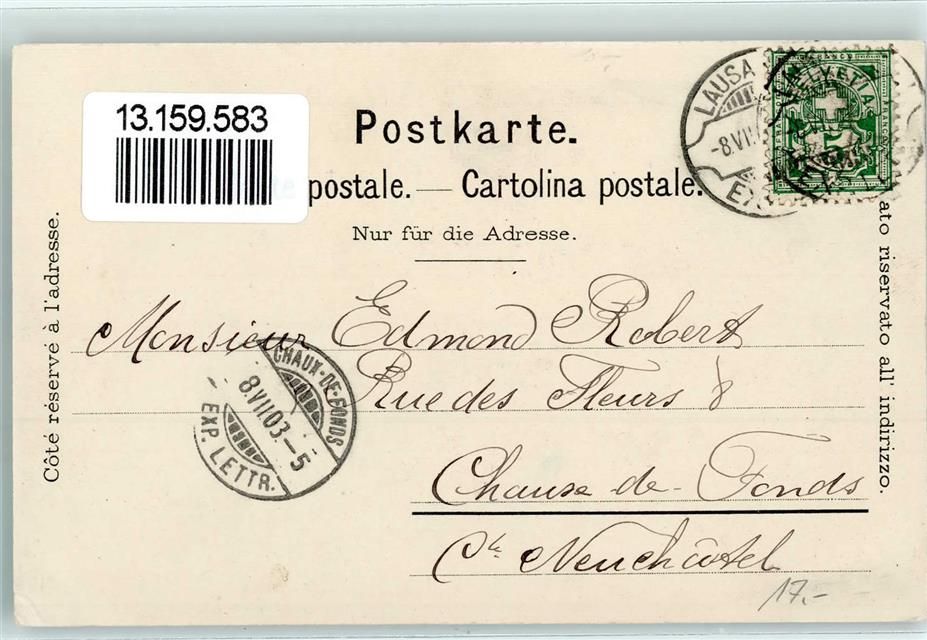 13.159.583
Postkarte.
postale. — Cartolina postale.
Nur für die Adresse.
Côté réservé à l'adresse.
ato riservato all' indirizzo.
LAUSA
-8.VII.
EXP
HELVETIA
FRANCO
Monsieur Edmond Robert
Rue des Fleurs 8
Chaux-de-Fonds
Ct. Neuchâtel
CHAUX-DE-FONDS
8.VII.03-5
EXP. LETTR.
17.-